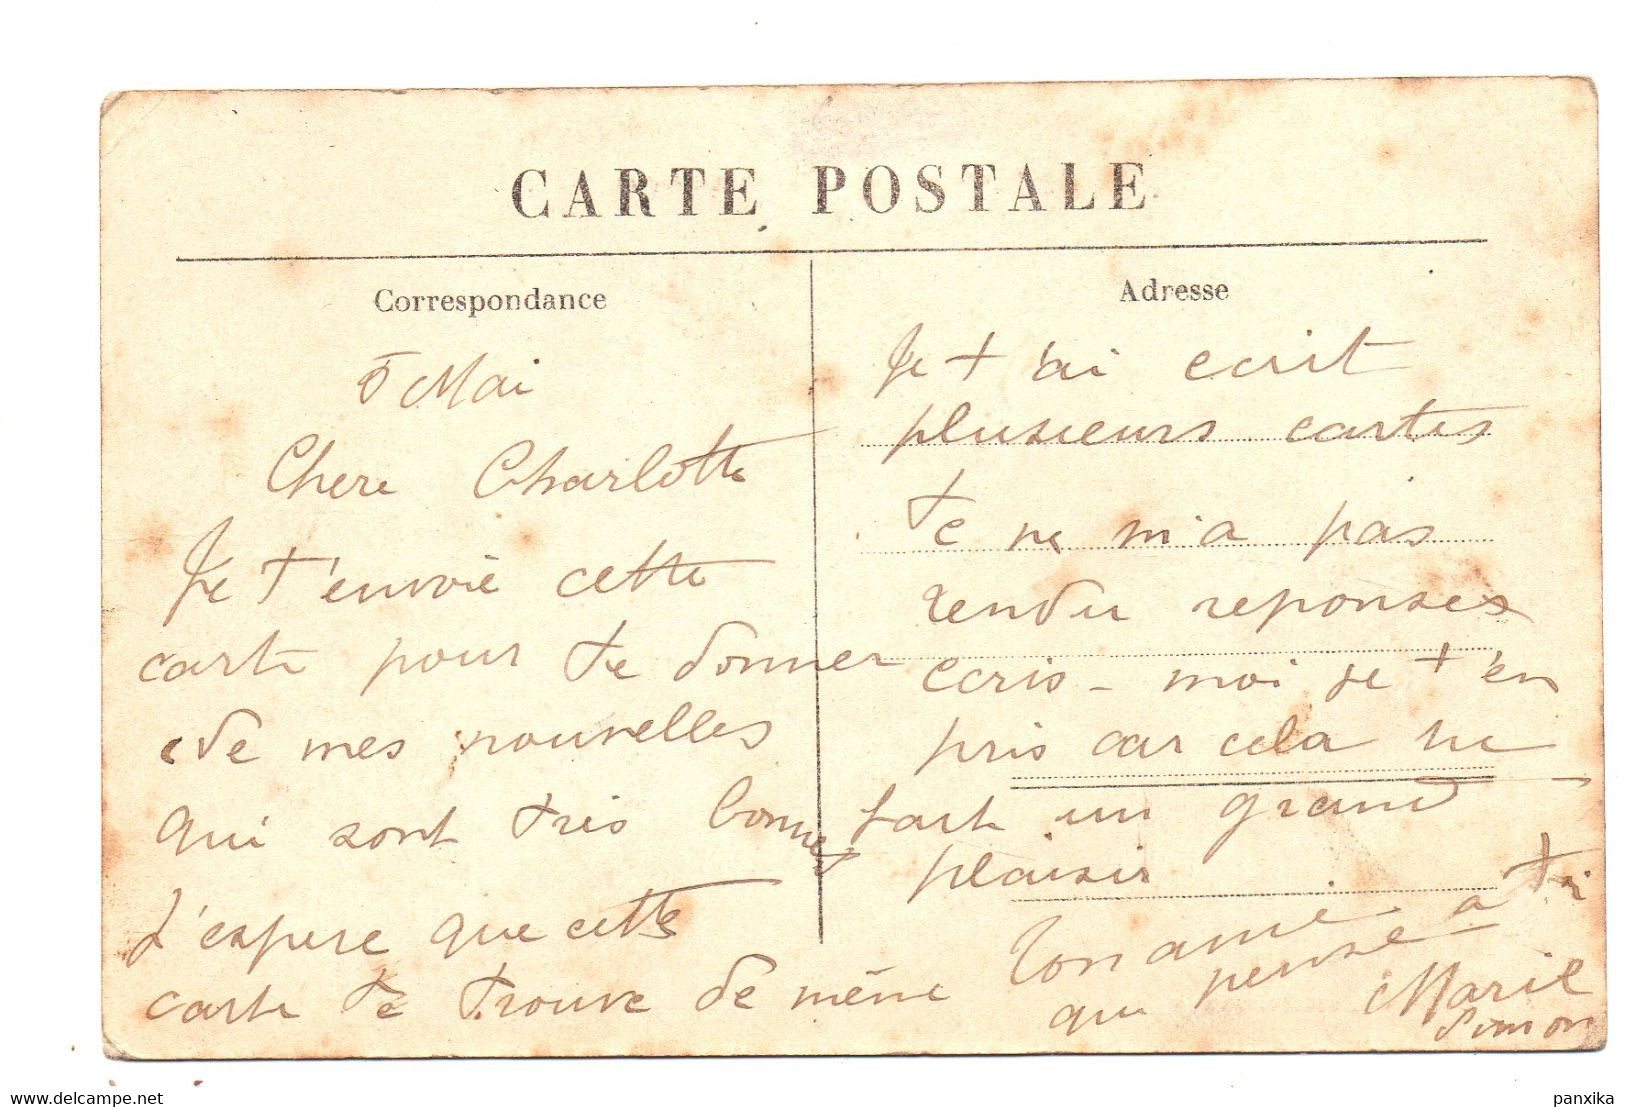 CARTE POSTALE
Correspondance
5 Mai
Chere Charlotte
Je t'envoie cette
carte pour te donner
de mes nouvelles
qui sont très bonnes
J'espere que cette
carte te trouve de même
Adresse
Je t'ai ecrit
plusieurs cartes
te ne m'a pas
rendu reponses
ecris-moi je t'en
pris car cela me
fait un grand
plaisir
Ton amie
qui pense a toi
Marie
Simon
panxika